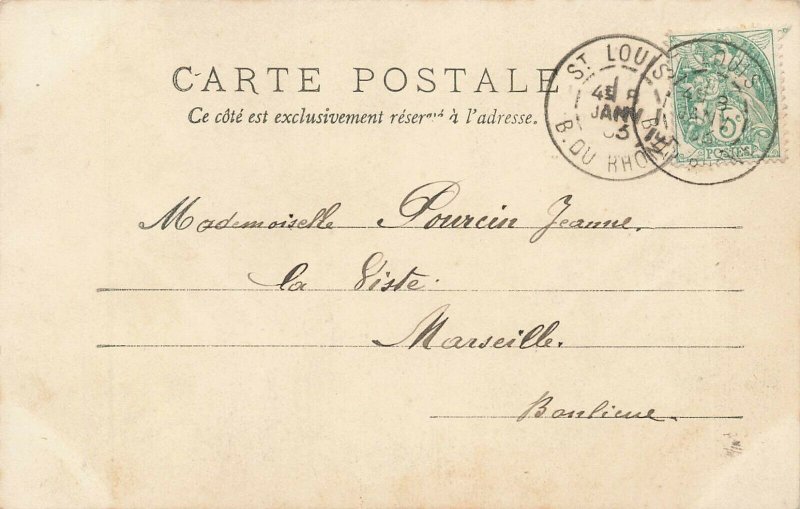 CARTE POSTALE
Ce côté est exclusivement réservé à l'adresse.
ST LOUIS
JANV
03
B. DU RHÔNE
5c
Mademoiselle Pourcin Jeanne.
la Viste.
Marseille.
Banlieue.